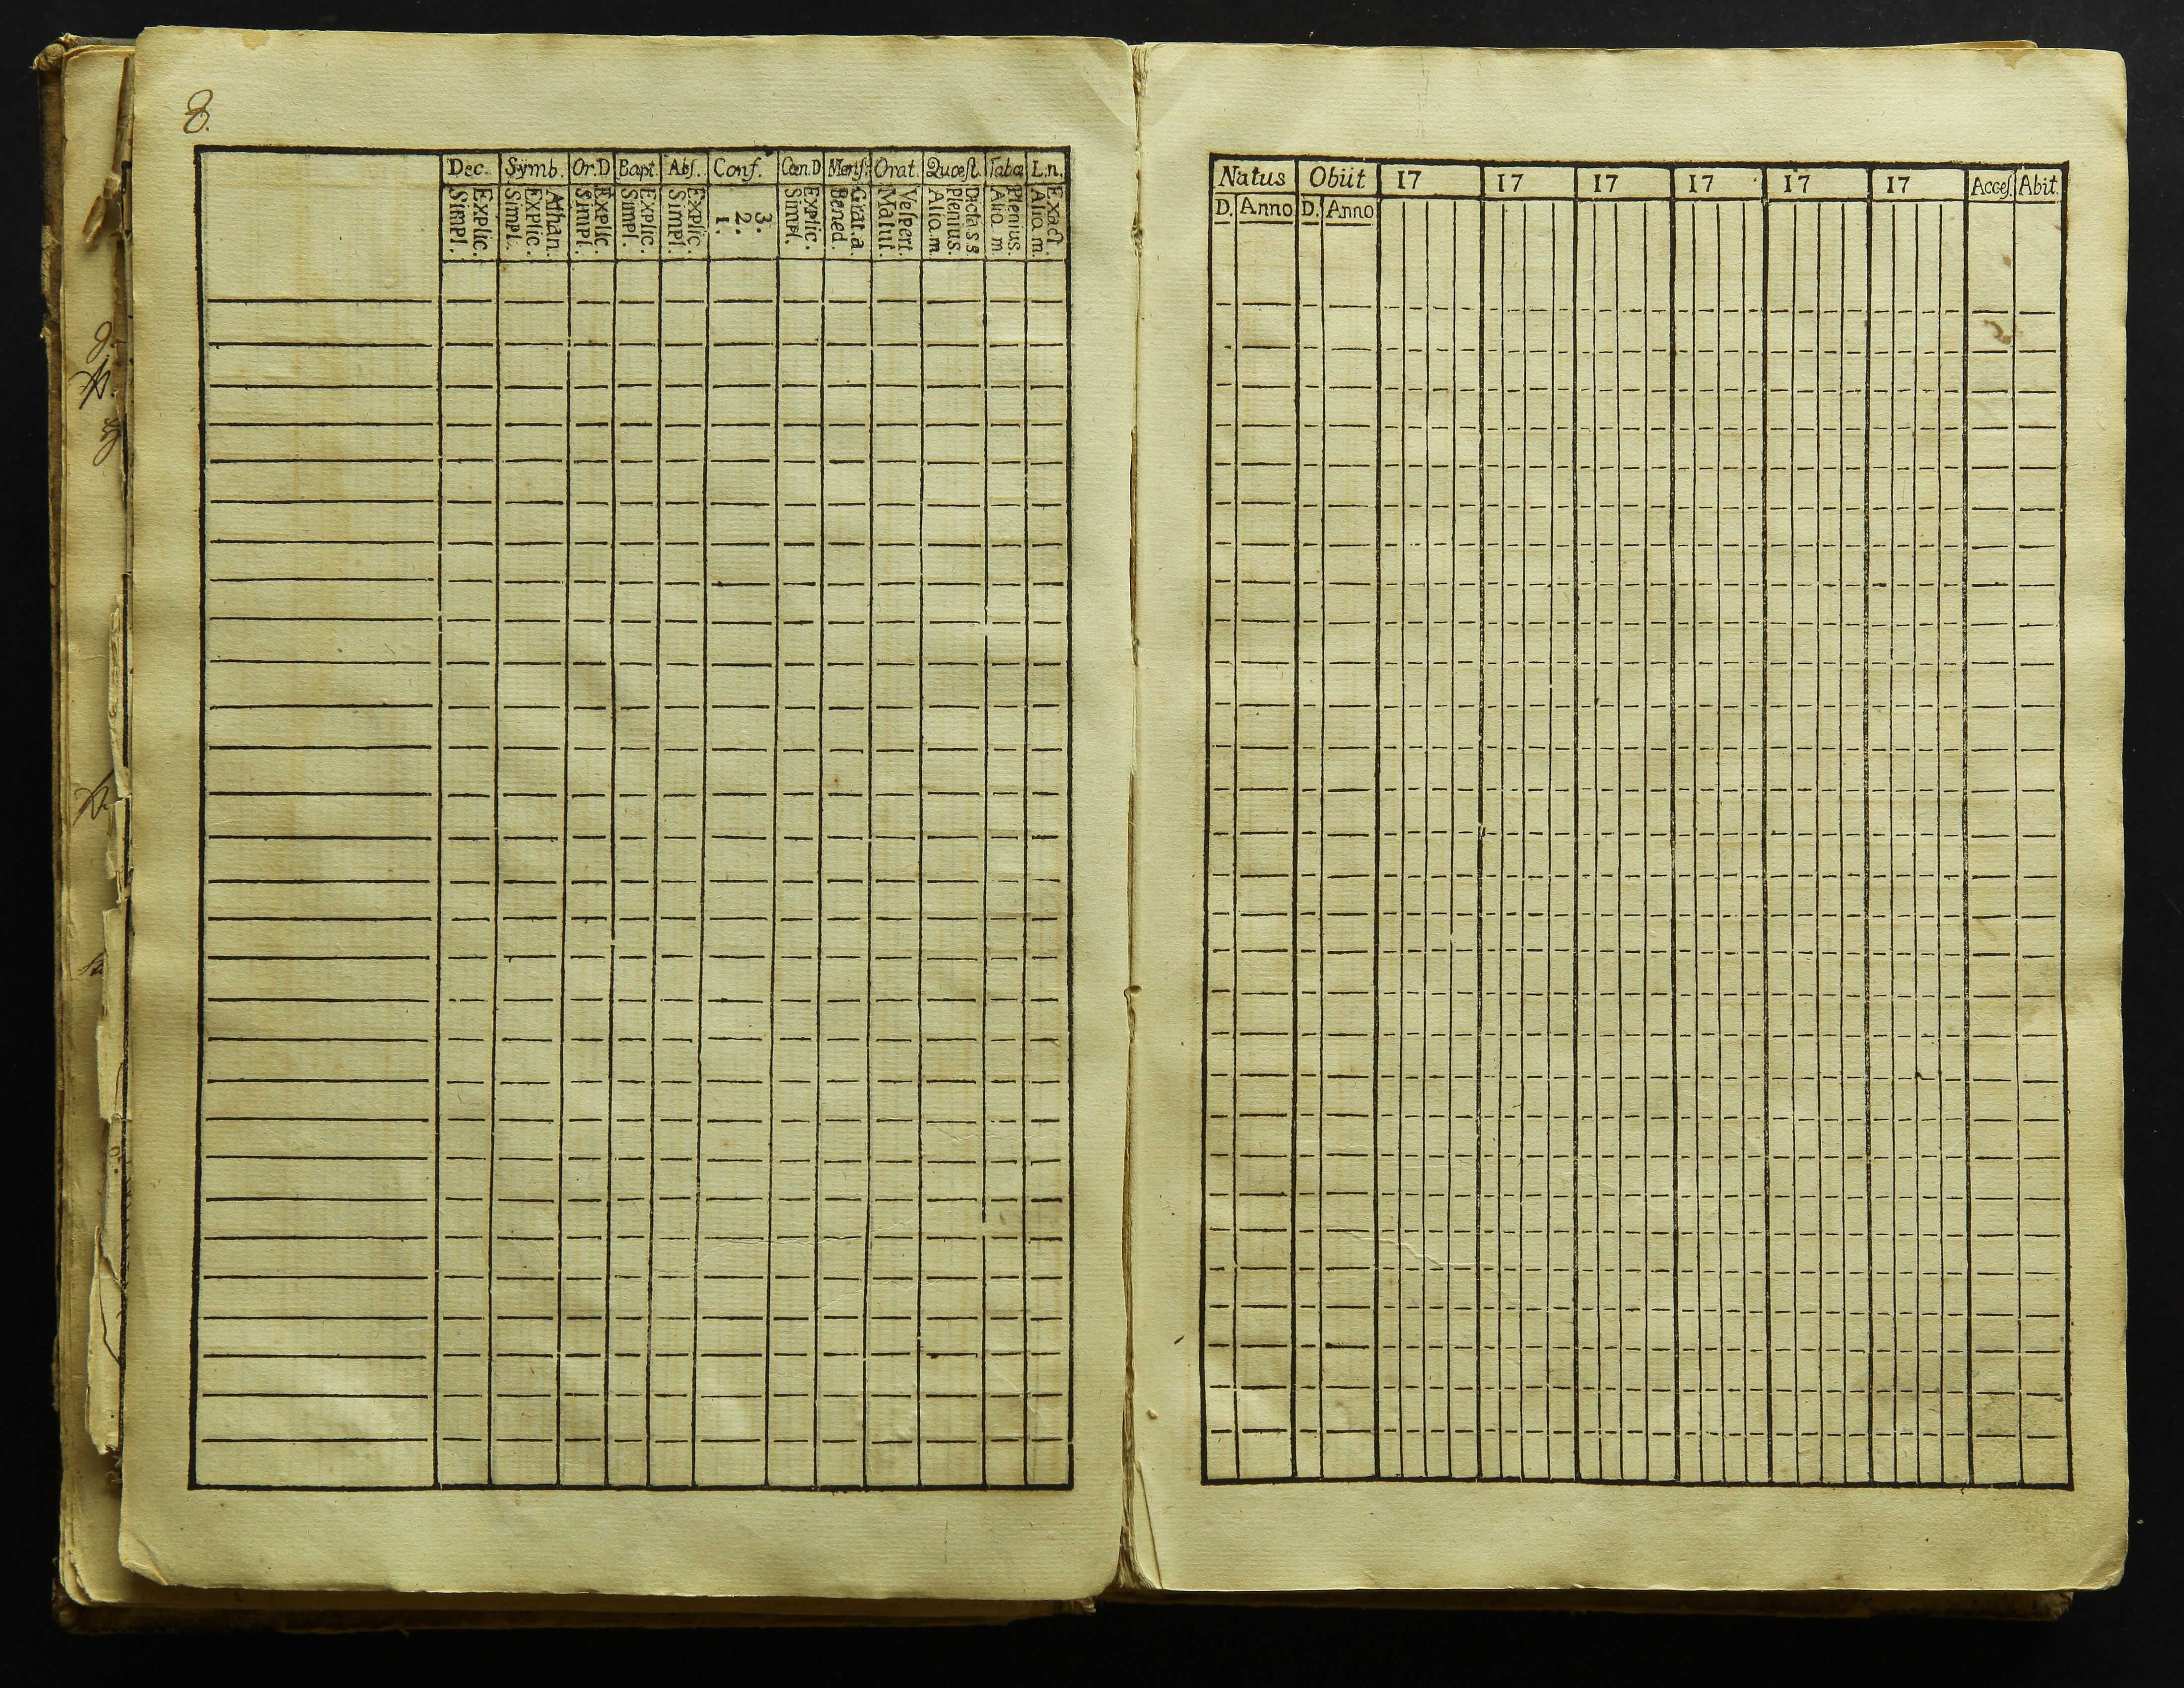 8.
Dec. Symb. Or.D Bapt. Abs. Conf. Cœn.D Mensſ. Orat. Quæst. Tabœ L.n.
Explic. Simpl.
Athan. Explic. Simpl.
Explic. Simpl.
Explic. Simpl.
Explic. Simpl.
3. 2. 1.
Explic. Simpl.
Grat.a. Bened.
Vespert. Matut.
Dicta s s. Plenius. Alio.m
Plenius. Alio m
Exact. Alio m.
Natus Obiit 17 17 17 17 17 17 Acces. Abit.
D. Anno D. Anno